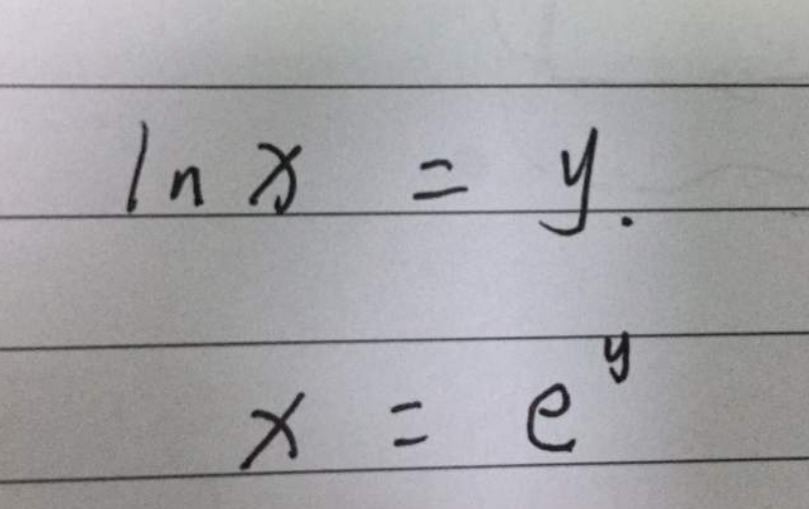 ln x = y.
x = e^y